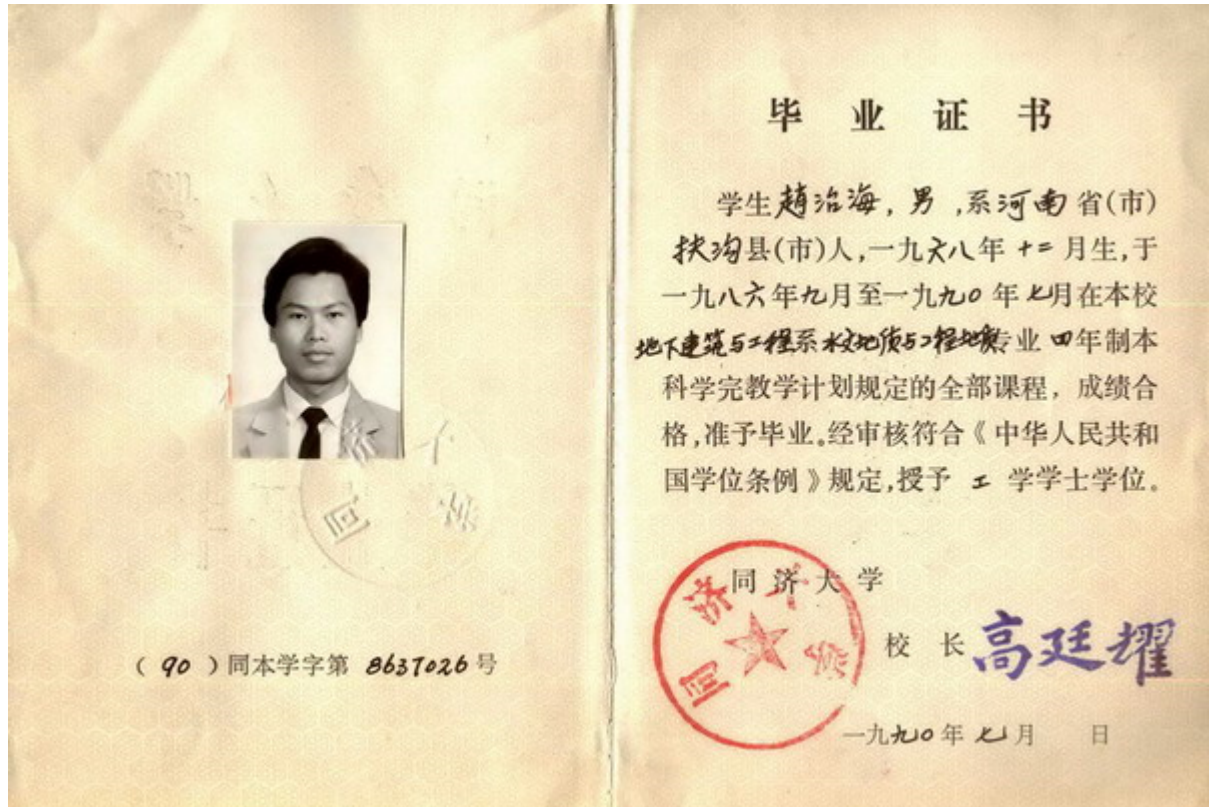 （90）同本学字第 8637026号
毕业证书
学生趙治海，男，系河南省(市)
扶沟县(市)人，一九六八年十二月生，于
一九八六年九月至一九九〇年七月在本校
地下建筑与工程系水文地质与工程地质专业四年制本
科学完教学计划规定的全部课程，成绩合
格，准予毕业。经审核符合《中华人民共和
国学位条例》规定，授予 工 学学士学位。
同济大学
同济大学
校长 高廷耀
一九九〇年七月 日